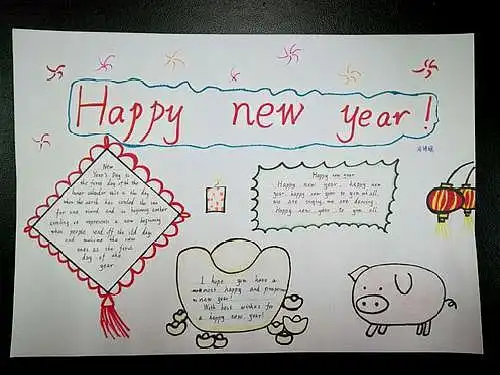 Happy new year!
New
Year's Day is
the first day of the
lunar calendar this is the day
when the earth has circled the sun
for one round and is beginning another
circling, it represents a new beginning
when people send off the old days
and welcome the new
ones as the first
day of the
year
Happy new year
Happy new year, happy new
year, happy new year to you all,
we are singing, we are dancing,
Happy new year to you all
I hope you have a
most happy and prosperous
new year!
With best wishes for
a happy new year!